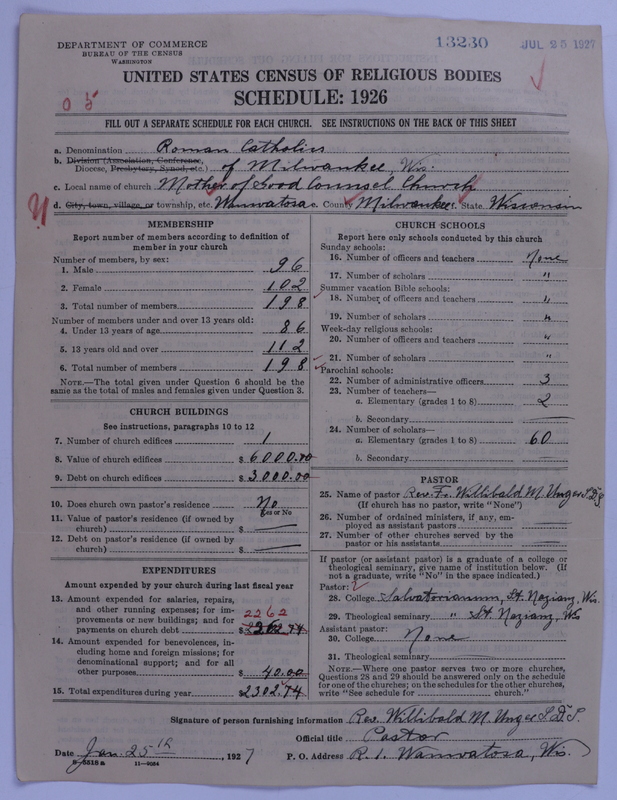 DEPARTMENT OF COMMERCE
BUREAU OF THE CENSUS
WASHINGTON
13230 JUL 25 1927
UNITED STATES CENSUS OF RELIGIOUS BODIES
SCHEDULE: 1926
0 5
FILL OUT A SEPARATE SCHEDULE FOR EACH CHURCH. SEE INSTRUCTIONS ON THE BACK OF THIS SHEET
a. Denomination Roman Catholics
b. Division (Association, Conference,
Diocese, Presbytery, Synod, etc.) of Milwaukee, Wis.
c. Local name of church Mother of Good Counsel Church
d. City, town, village, or township, etc. Wauwatosa e. County Milwaukee f. State Wisconsin
MEMBERSHIP
Report number of members according to definition of
member in your church
Number of members, by sex:
1. Male 96
2. Female 102
3. Total number of members 198
Number of members under and over 13 years old:
4. Under 13 years of age 86
5. 13 years old and over 112
6. Total number of members 198
NOTE.—The total given under Question 6 should be the
same as the total of males and females given under Question 3.
CHURCH BUILDINGS
See instructions, paragraphs 10 to 12
7. Number of church edifices 1
8. Value of church edifices $ 6000.00
9. Debt on church edifices $ 3000.00
10. Does church own pastor's residence No
Yes or No
11. Value of pastor's residence (if owned by
church) $
12. Debt on pastor's residence (if owned by
church) $
EXPENDITURES
Amount expended by your church during last fiscal year
13. Amount expended for salaries, repairs,
and other running expenses; for im-
provements or new buildings; and for 2262
payments on church debt $ 2262.74
14. Amount expended for benevolences, in-
cluding home and foreign missions; for
denominational support; and for all
other purposes $ 40.00
15. Total expenditures during year $2302.74
CHURCH SCHOOLS
Report here only schools conducted by this church
Sunday schools:
16. Number of officers and teachers None
17. Number of scholars "
Summer vacation Bible schools:
18. Number of officers and teachers "
19. Number of scholars "
Week-day religious schools:
20. Number of officers and teachers "
21. Number of scholars "
Parochial schools:
22. Number of administrative officers 3
23. Number of teachers—
a. Elementary (grades 1 to 8) 2
b. Secondary
24. Number of scholars—
a. Elementary (grades 1 to 8) 60
b. Secondary
PASTOR
25. Name of pastor Rev. Fr. Willibald M. Unger S.D.S.
(If church has no pastor, write "None")
26. Number of ordained ministers, if any, em-
ployed as assistant pastors
27. Number of other churches served by the
pastor or his assistants
If pastor (or assistant pastor) is a graduate of a college or
theological seminary, give name of institution below. (If
not a graduate, write "No" in the space indicated.)
Pastor:
28. College Salvatorianum, St. Nazianz, Wis.
29. Theological seminary " St. Nazianz, Wis
Assistant pastor:
30. College None
31. Theological seminary
NOTE.—Where one pastor serves two or more churches,
Questions 28 and 29 should be answered only on the schedule
for one of the churches; on the schedules for the other churches,
write "See schedule for church."
Signature of person furnishing information Rev. Willibald M. Unger S.D.S.
Official title Pastor
Date Jan. 25th, 1927 P. O. Address R. 1. Wauwatosa, Wis.
8—5518 a 11—9034